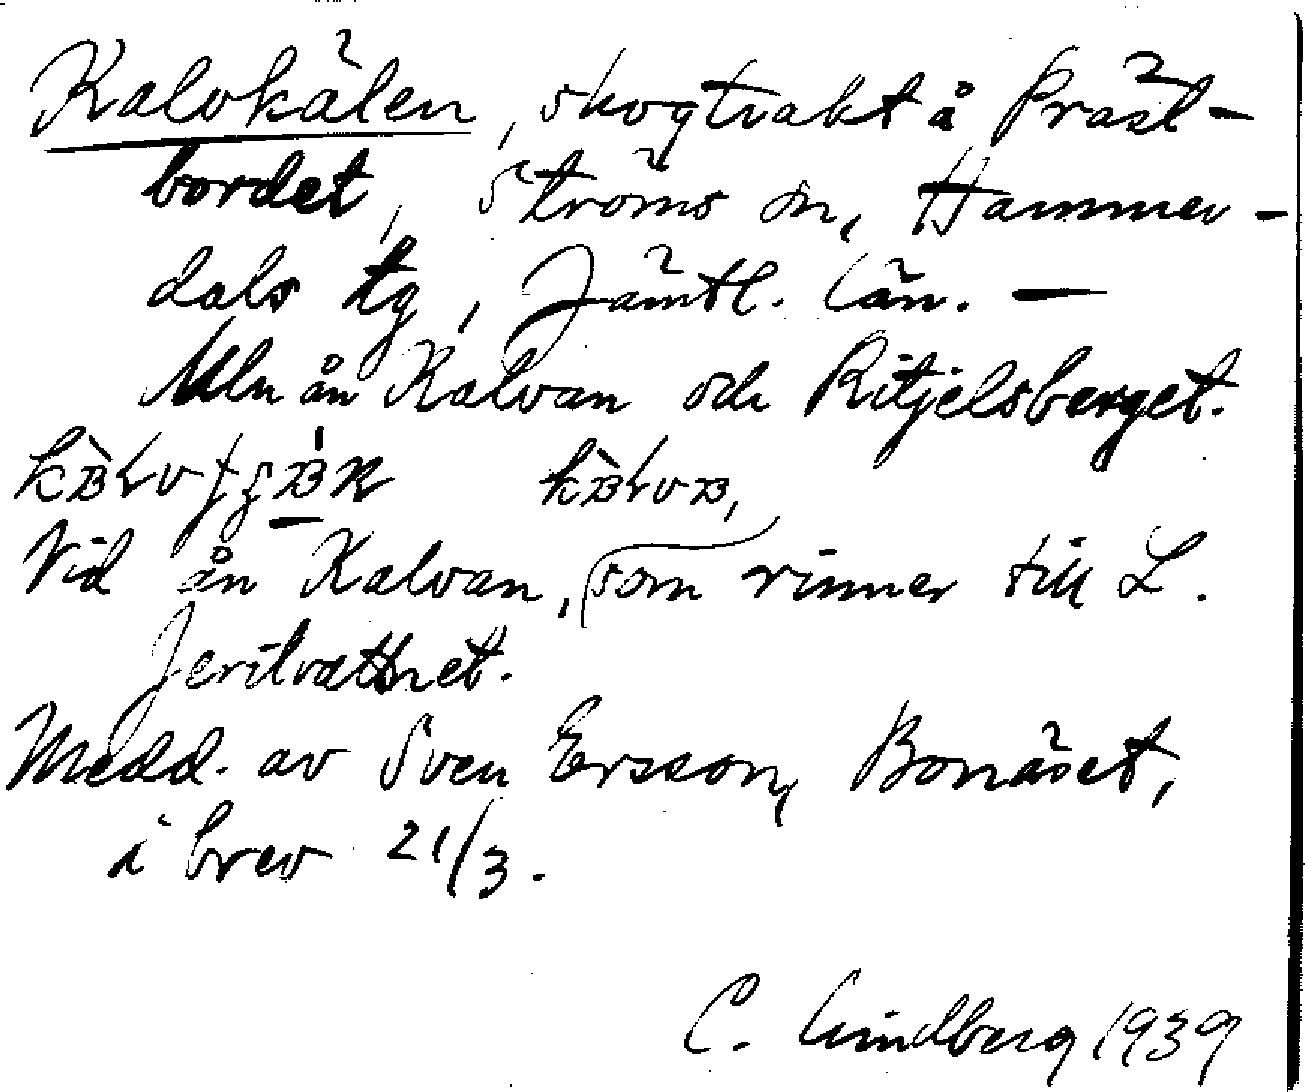 Kalvkälen, skogtrakt å Präst-
bordet, Ströms sn, Hammer-
dals tg, Jämtl. län. —
Mln ån Kalvan och Ritjelsberget.
Vid ån Kalvan, som rinner till L.
Jerilvattnet.
Medd. av Sven Ersson, Bonäset,
i brev 21/3.
C. Lindberg 1939